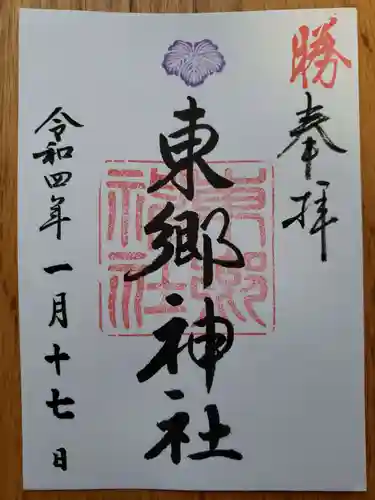 勝
奉拝
東郷神社
東郷神社
令和四年一月十七日